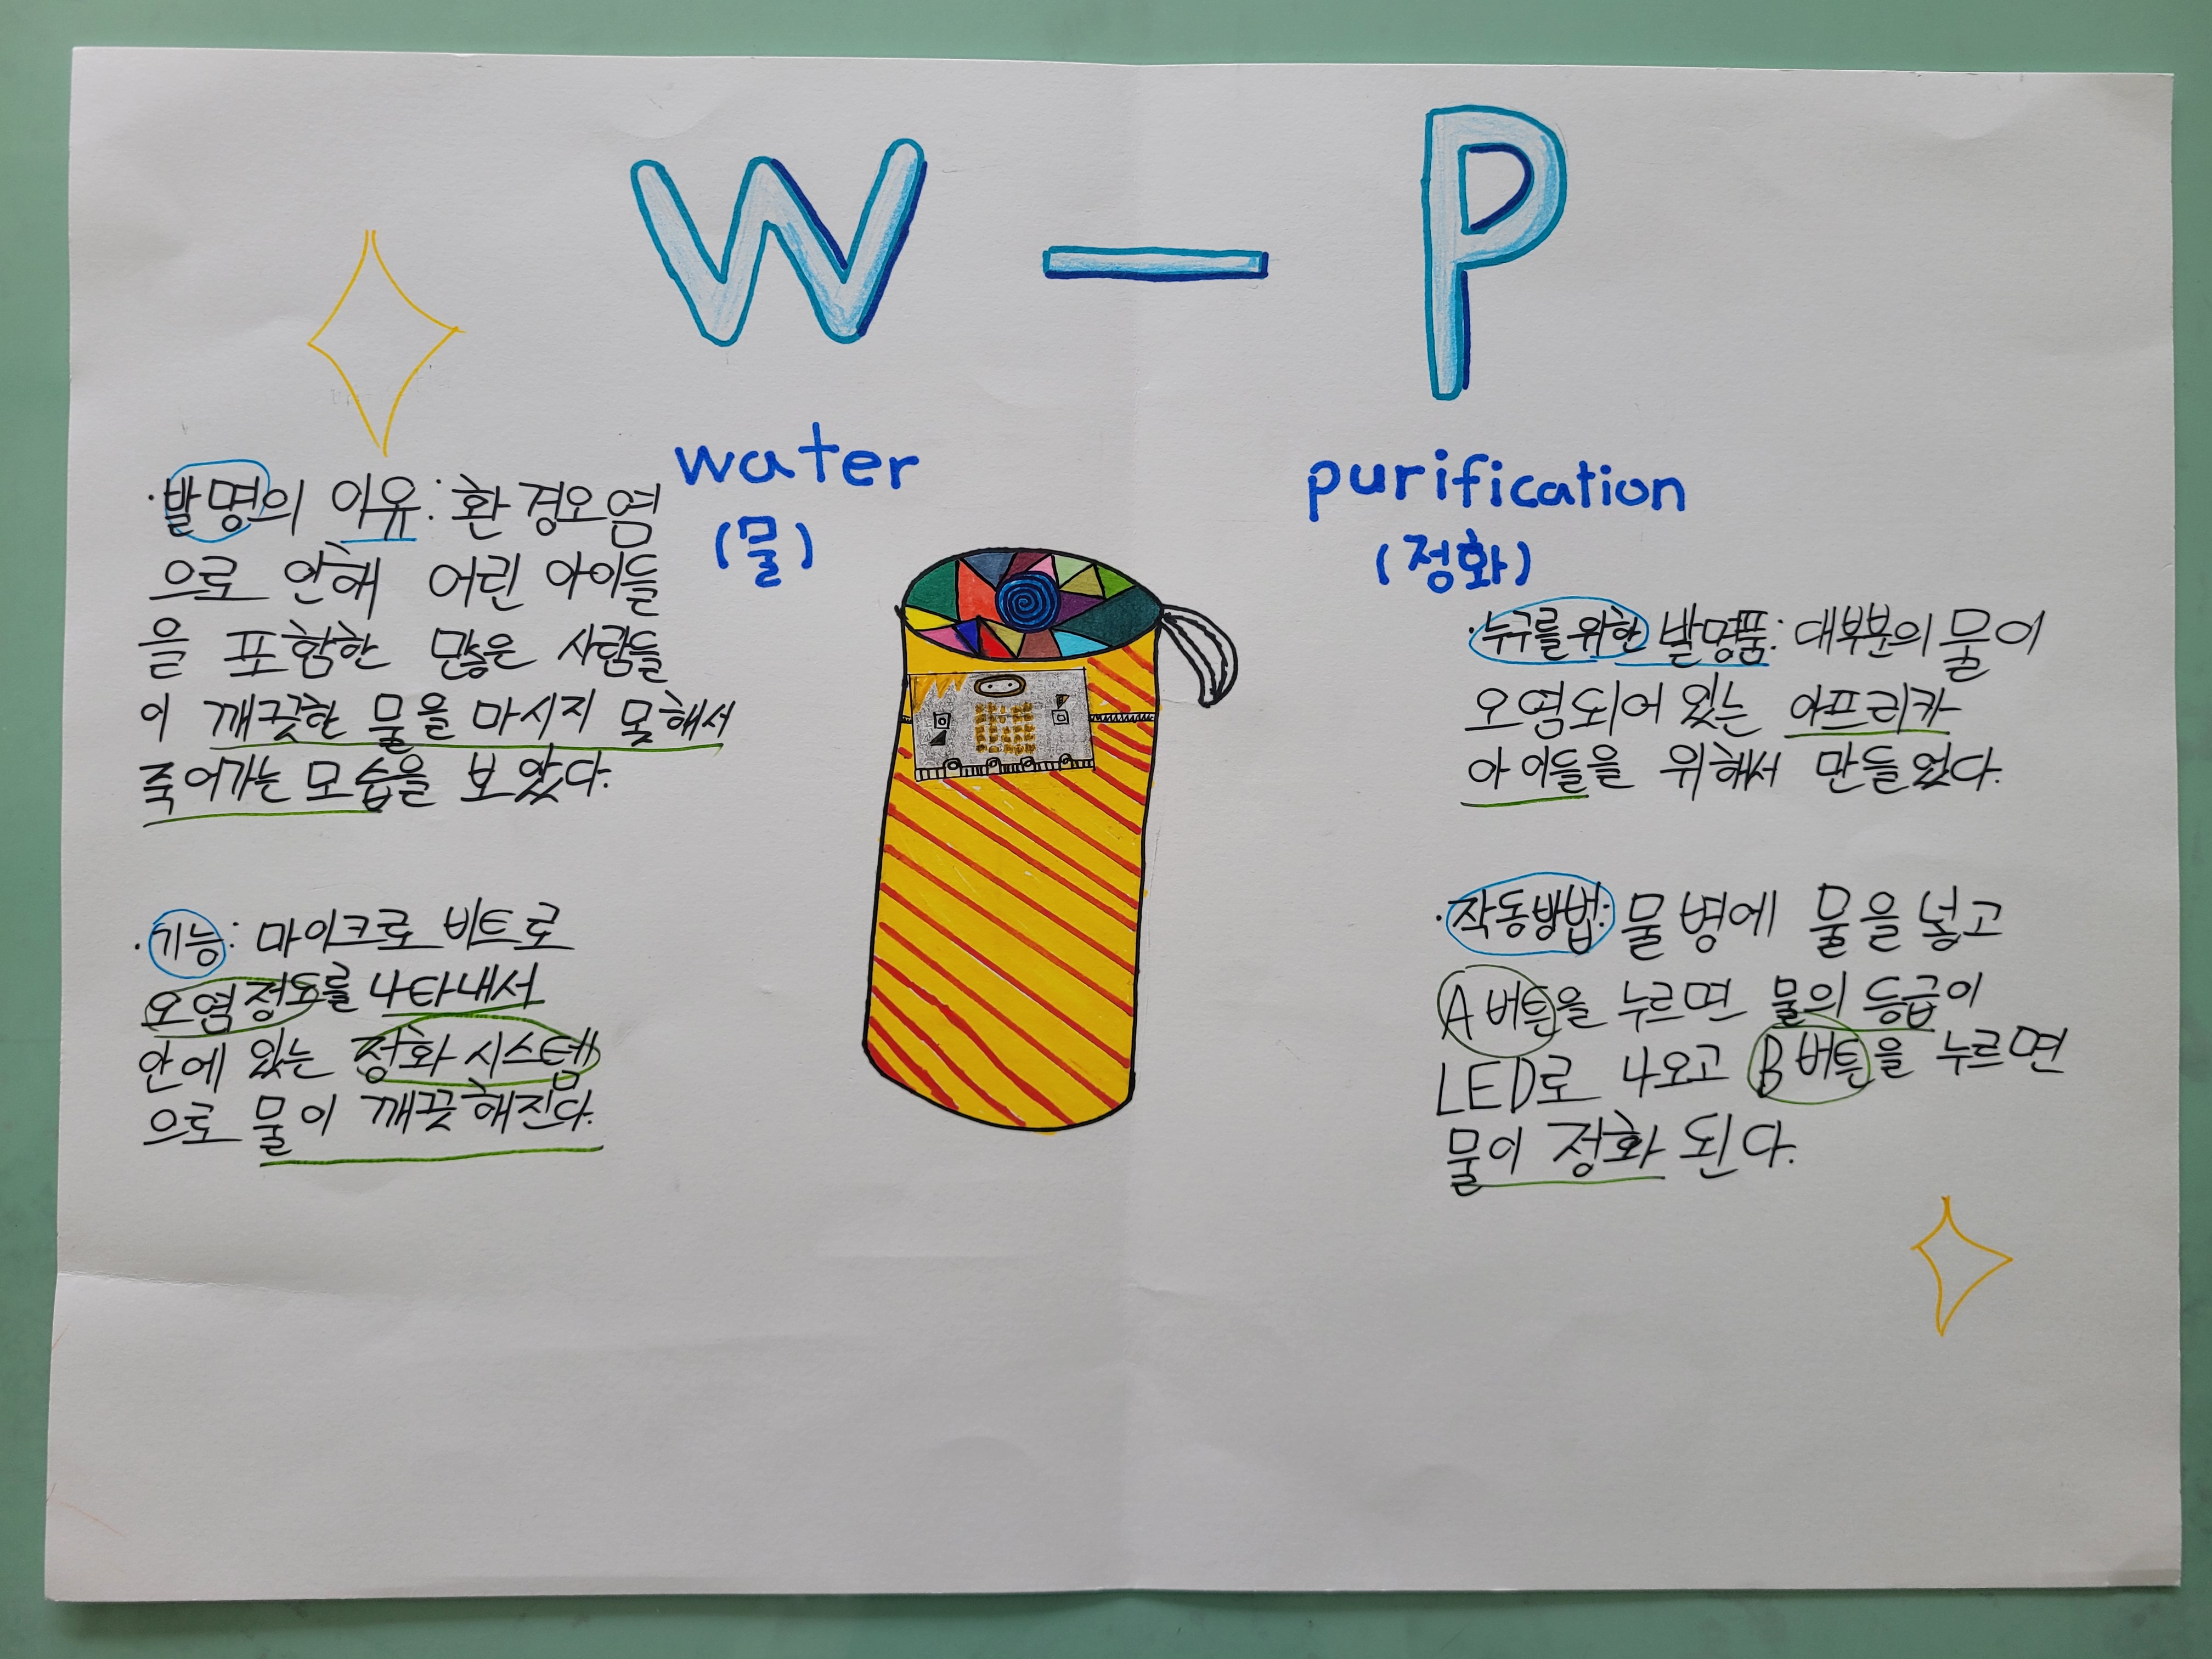 W — P
water
(물)
purification
(정화)
·발명의 이유: 환경오염
으로 인해 어린 아이들
을 포함한 많은 사람들
이 깨끗한 물을 마시지 못해서
죽어가는 모습을 보았다.
·기능: 마이크로 비트로
오염정도를 나타내서
안에 있는 정화 시스템
으로 물이 깨끗해진다.
·누구를 위한 발명품: 대부분의 물이
오염되어 있는 아프리카
아이들을 위해서 만들었다.
·작동방법: 물병에 물을 넣고
A버튼을 누르면 물의 등급이
LED로 나오고 B버튼을 누르면
물이 정화 된다.